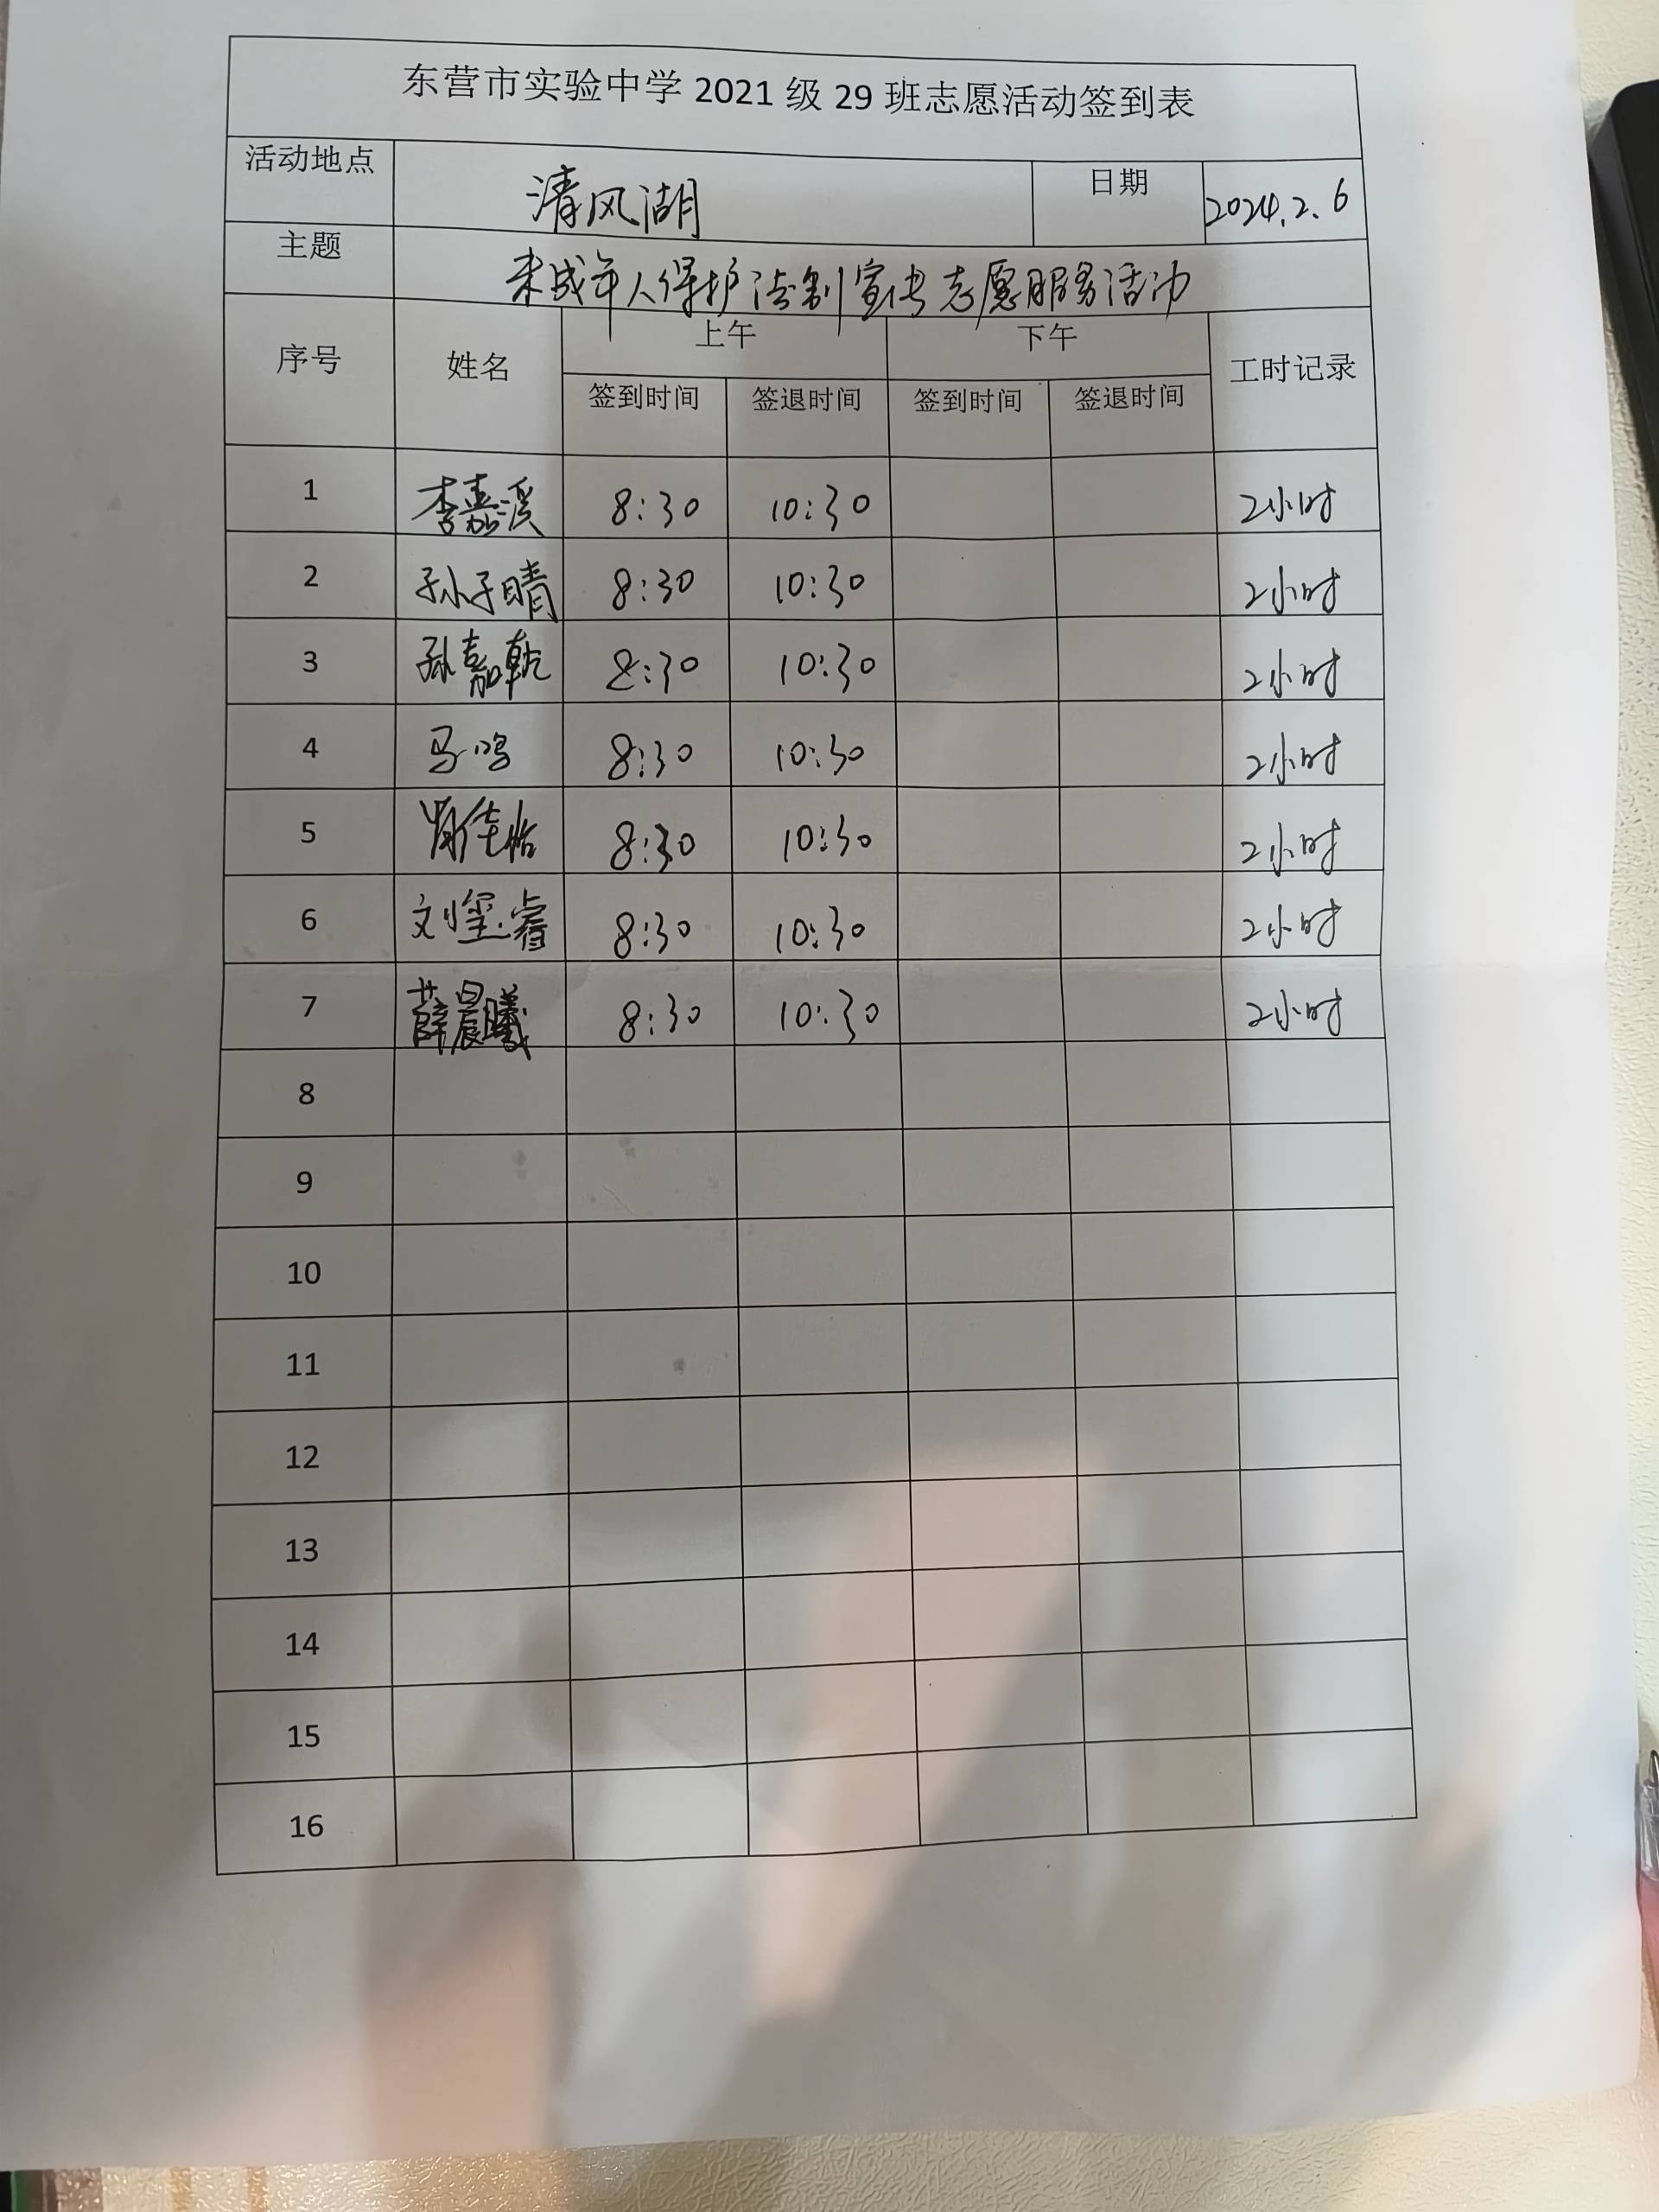 东营市实验中学 2021 级 29 班志愿活动签到表
活动地点 清风湖 日期 2024.2.6
主题 未成年人保护法制宣传志愿服务活动
序号 姓名 上午 下午 工时记录
签到时间 签退时间 签到时间 签退时间
1 李嘉溪 8:30 10:30 2小时
2 孙子晴 8:30 10:30 2小时
3 孙嘉乾 8:30 10:30 2小时
4 马鸣 8:30 10:30 2小时
5 肖佳怡 8:30 10:30 2小时
6 刘玺睿 8:30 10:30 2小时
7 薛晨曦 8:30 10:30 2小时
8
9
10
11
12
13
14
15
16